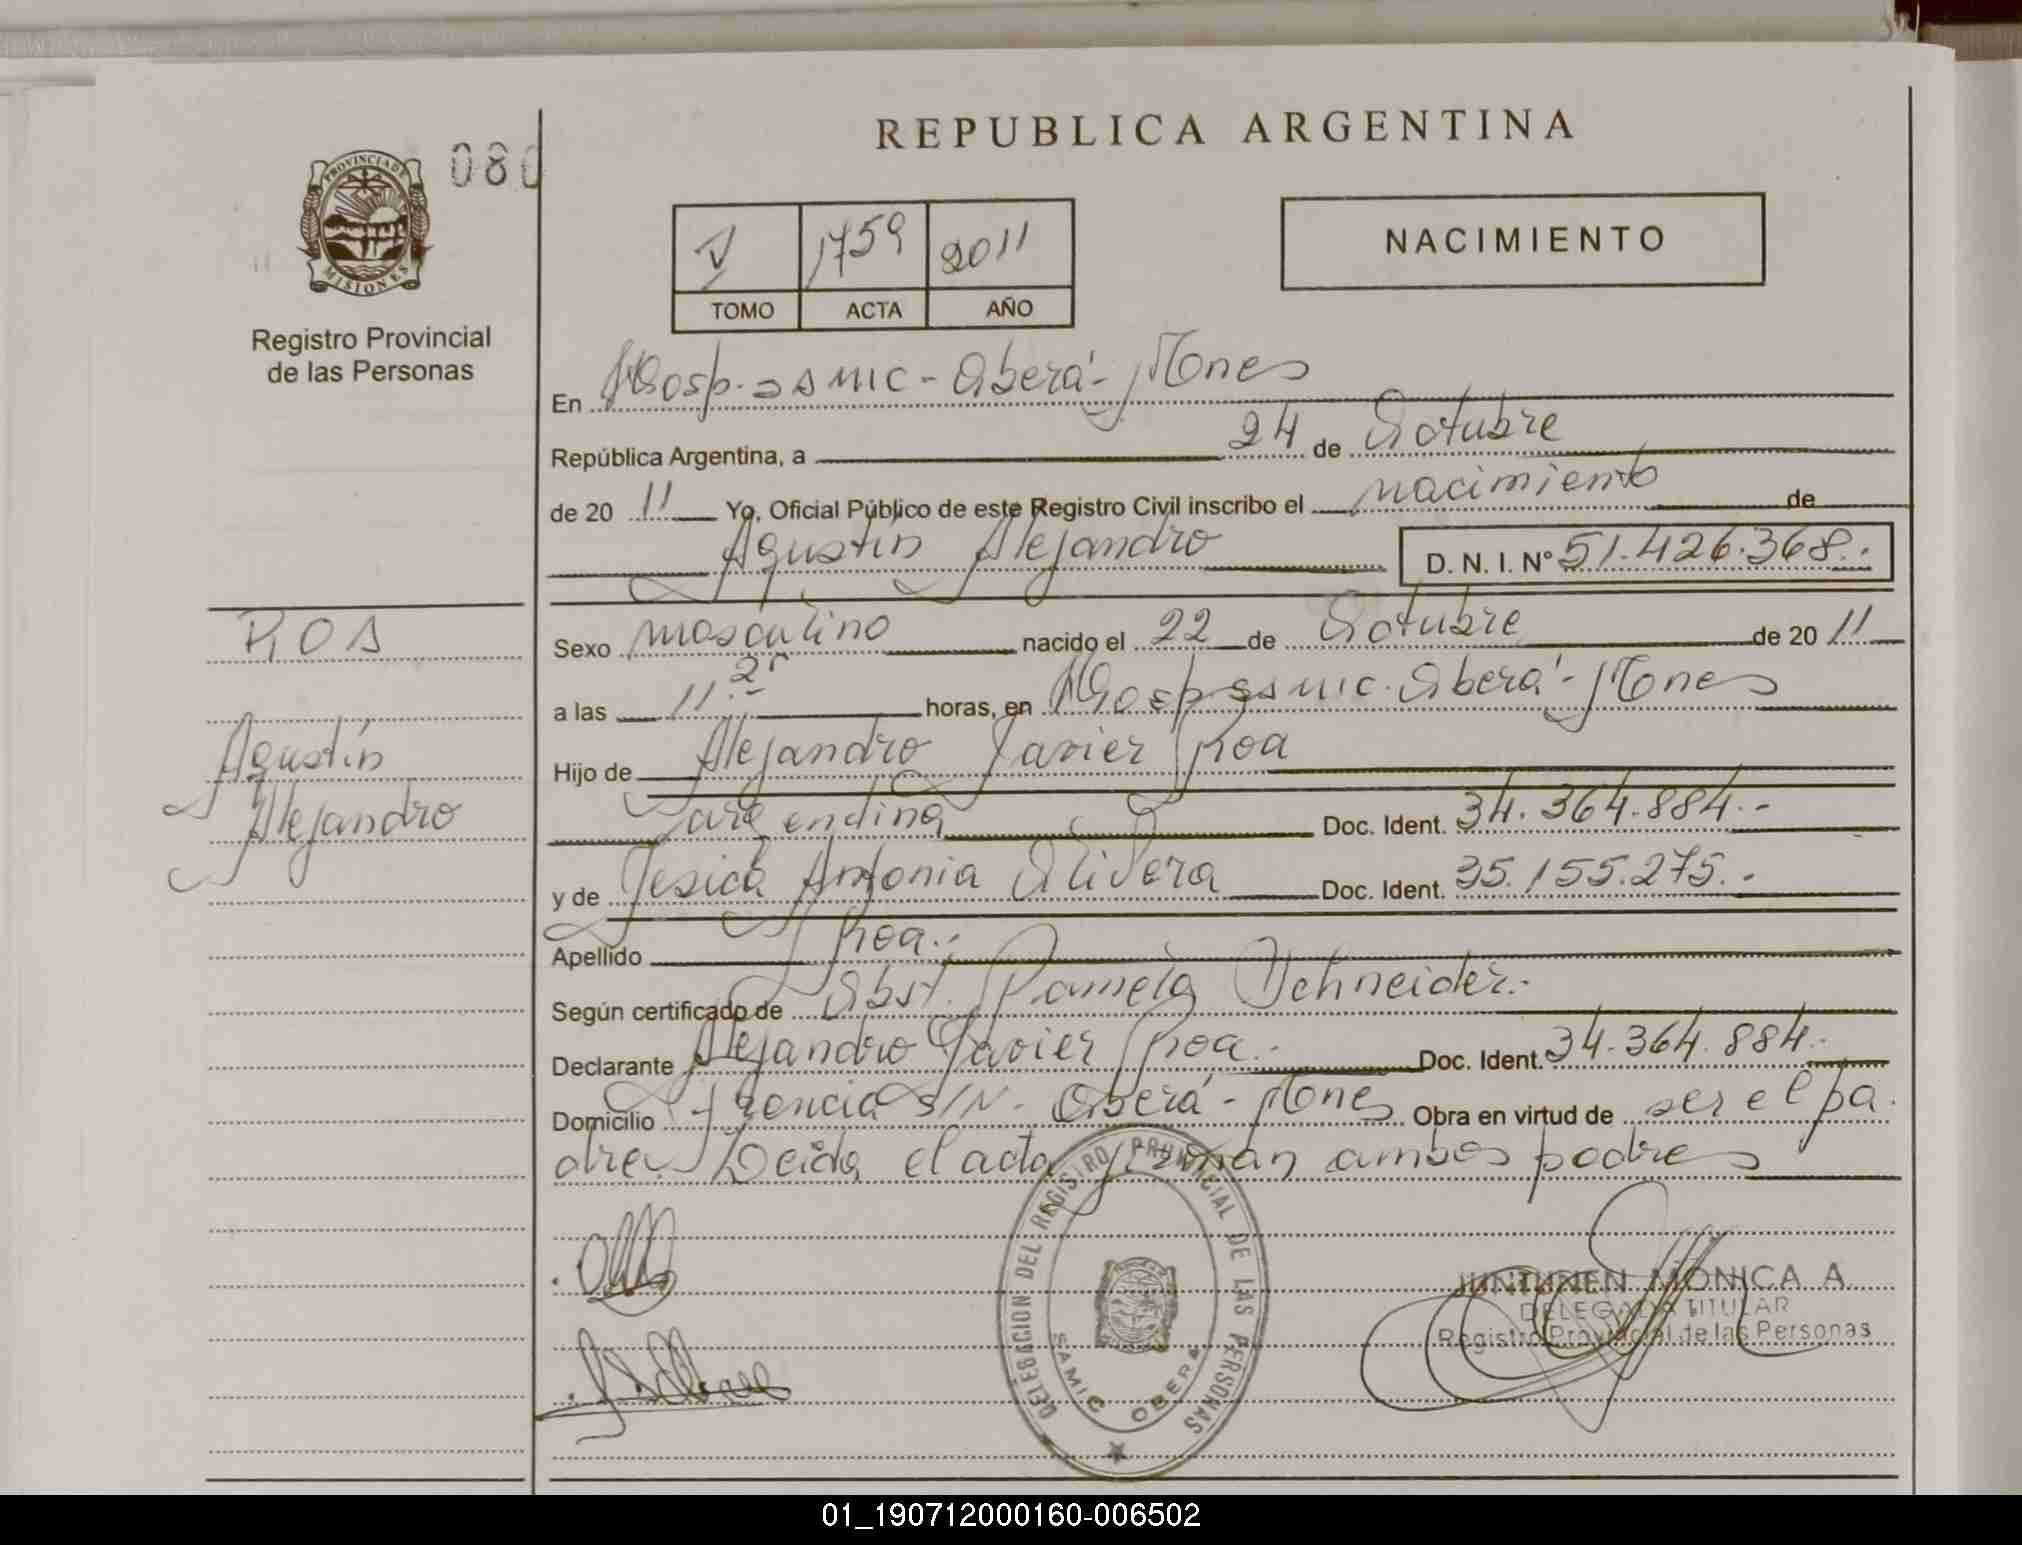 REPUBLICA ARGENTINA
PROVINCIA DE MISIONES
080
Registro Provincial
de las Personas
V 1759 2011
TOMO ACTA AÑO
NACIMIENTO
En Hosp. SAMIC - Oberá - Mones
República Argentina, a 24 de Octubre
de 20 11 Yo, Oficial Público de este Registro Civil inscribo el nacimiento de
Agustín Alejandro D. N. I. Nº 51.426.368.-
ROA
Agustín
Alejandro
Sexo masculino nacido el 22 de Octubre de 20 11
a las 11.- horas, en Hosp. SAMIC. Oberá - Mones
Hijo de Alejandro Javier Roa
argentina Doc. Ident. 34.364.884.-
y de Jesica Antonia Olivera Doc. Ident. 35.155.275.-
Apellido Roa.-
Según certificado de Obst. Pamela Schneider.-
Declarante Alejandro Javier Roa.- Doc. Ident. 34.364.884.-
Domicilio S/N - Oberá - Mones Obra en virtud de ser el pa
dre. Leida el acta firman ambos padres
DELEGACION DEL REGISTRO PROVINCIAL DE LAS PERSONAS
SAMIC OBERA
JUNTUNEN MONICA A.
DELEGADA TITULAR
Registro Provincial de las Personas
01_190712000160-006502